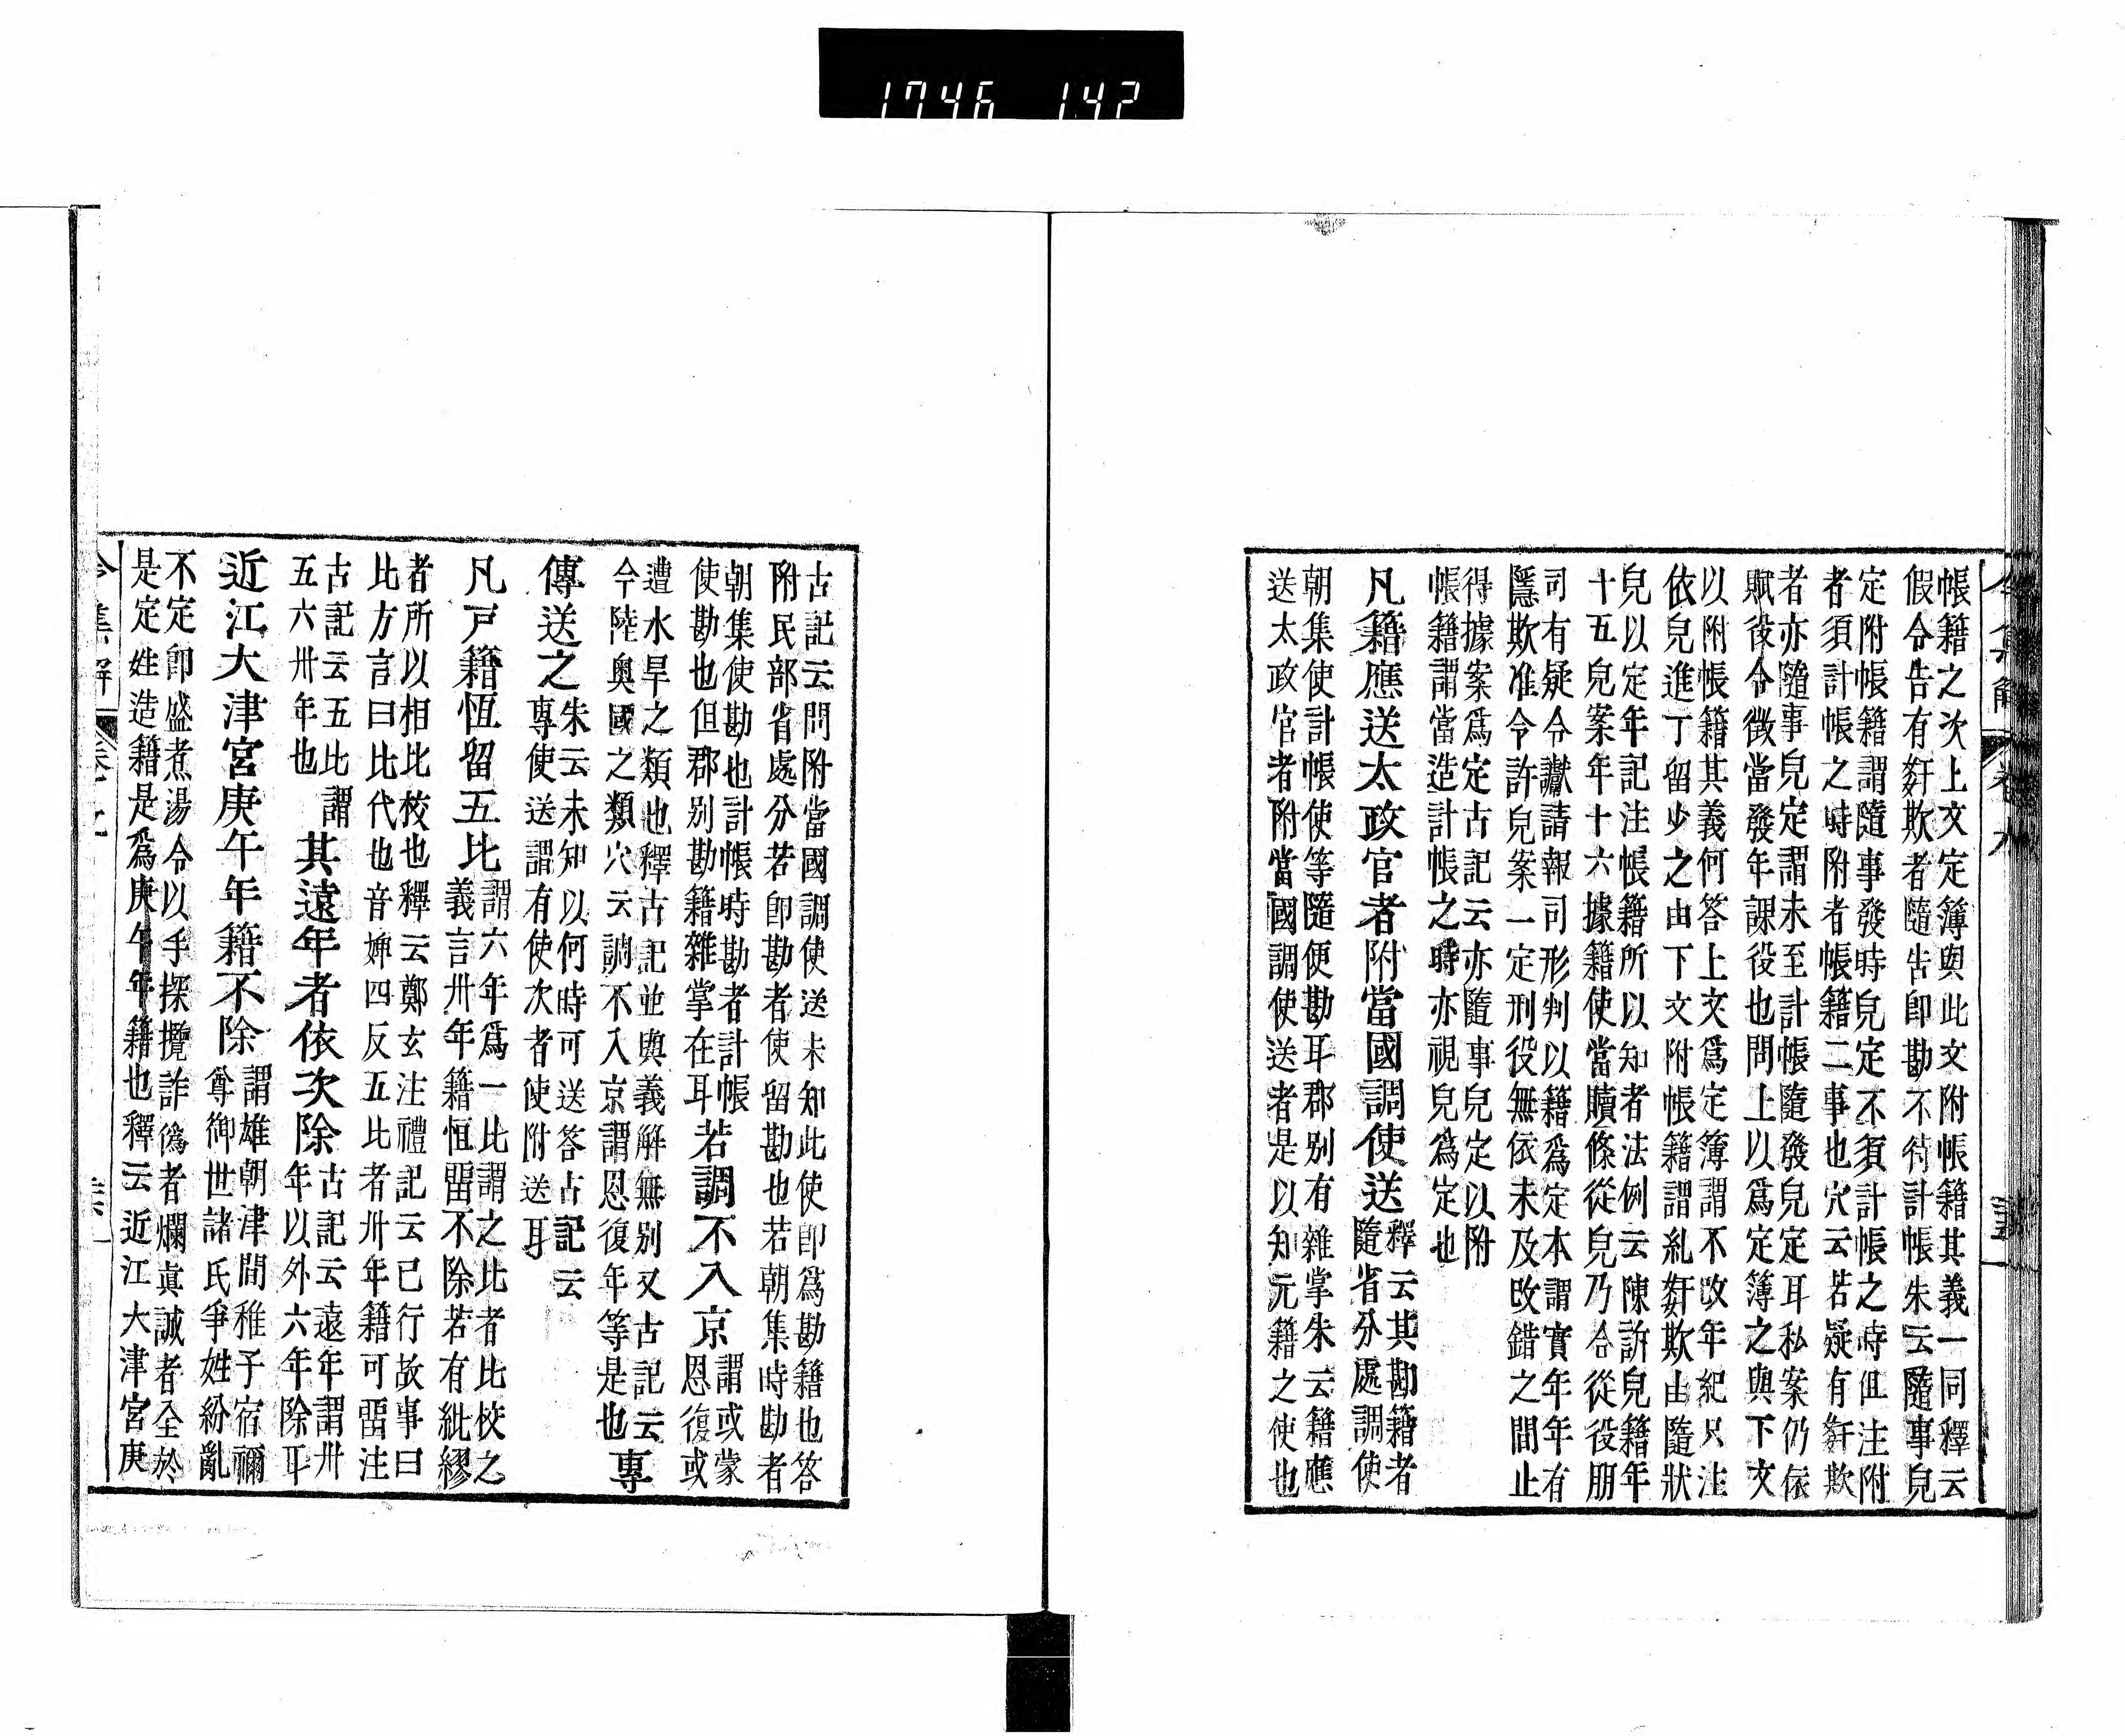 1746 147
帳籍之次上文定簿與此文附帳籍其義一同釋云
假令告有姧欺者隨告卽勘不待計帳朱云隨事皃
定附帳籍謂隨事發時皃定不須計帳之時但注附
者須計帳之時附者帳籍二事也穴云若疑有姧欺
者亦隨事皃定謂未至計帳隨發皃定耳私案仍依
賦役令徵當發年課役也問上以爲定簿之與下文
以附帳籍其義何答上文爲定簿謂不改年紀只注
依皃進丁留少之由下文附帳籍謂糺姧欺由隨狀
皃以定年記注帳籍所以知者法例云陳訴皃籍年
十五皃案年十六據籍使當贖條從皃乃合從役朋
司有疑令讞請報司形判以籍爲定本謂實年年有
隱欺准令許皃案一定刑役無依未及改錯之間止
得據案爲定古記云亦隨事皃定以附
帳籍謂當造計帳之時亦視皃爲定也
凡籍應送太政官者附當國調使送
釋云其勘籍者
隨省分處調使
朝集使計帳使等隨便勘耳郡别有雜掌朱云籍應
送太政官者附當國調使送者是以知元籍之使也
古記云問附當國調使送未知此使卽爲勘籍也答
附民部省處分若卽勘者使留勘也若朝集時勘者
朝集使勘也計帳時勘者計帳
使勘也但郡别勘籍雜掌在耳
若調不入京
謂或蒙
恩復或
遭水旱之類也釋古記並與義解無别又古記云
今陸奥國之類穴云調不入京謂恩復年等是也
專
傳送之
朱云未知以何時可送答古記云
專使送謂有使次者使附送耳
凡戸籍恆留五比
謂六年爲一比謂之比者比校之
義言卅年籍恒畱不除若有紕繆
者所以相比校也釋云鄭玄注禮記云已行故事曰
比方言曰比代也音婢四反五比者卅年籍可畱注
古記云五比謂
五六卅年也
其遠年者依次除
古記云遠年謂卅
年以外六年除耳
近江大津宮庚午年籍不除
謂雄朝津間稚子宿禰
尊御世諸氏爭姓紛亂
不定卽盛煮湯令以手探攬詐僞者爛眞誠者全於
是定姓造籍是爲庚午年籍也釋云近江大津宮庚